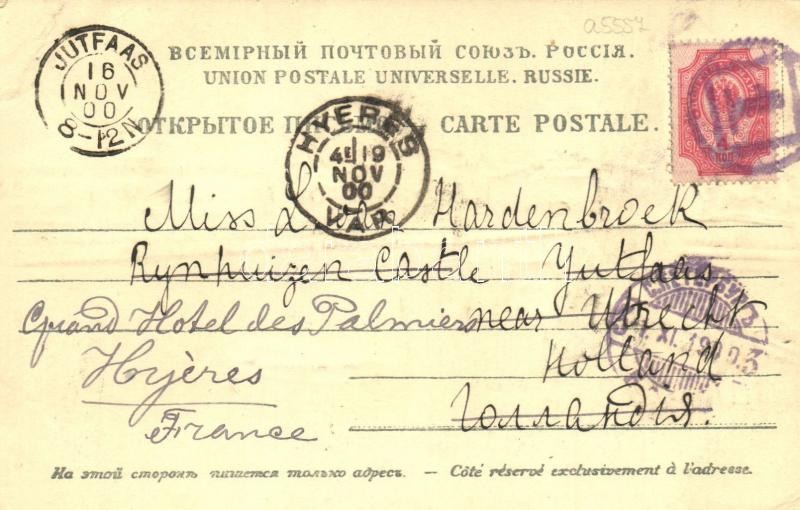 a5557
JUTFAAS
16
NOV
00
8-12N
ВСЕМІРНЫЙ ПОЧТОВЫЙ СОЮЗЪ. РОССІЯ.
UNION POSTALE UNIVERSELLE. RUSSIE.
ОТКРЫТОЕ CARTE POSTALE.
HYÈRES
4E 19
NOV
00
VAR
4
КОП
Miss L. van Hardenbroek
Rynhuizen Castle Yutfaas
near Utrecht
Holland
Голландія.
Grand Hotel des Palmiers
Hyères
France
XI. 1900
3
На этой сторонѣ пишется только адресъ. — Côté réservé exclusivement à l'adresse.